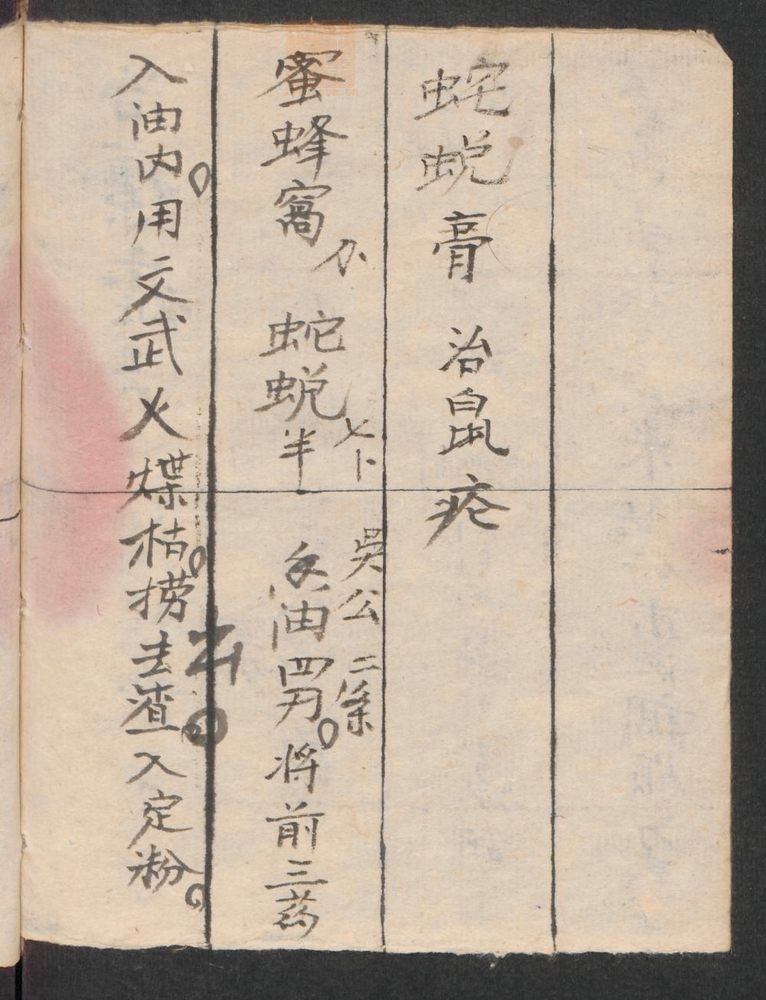 蛇蜕膏 治鼠疮
蜜蜂窩 蛇蜕半 吴公二条 香油四两。将前三药
入油内。用文武火煠枯。捞去渣。入定粉。